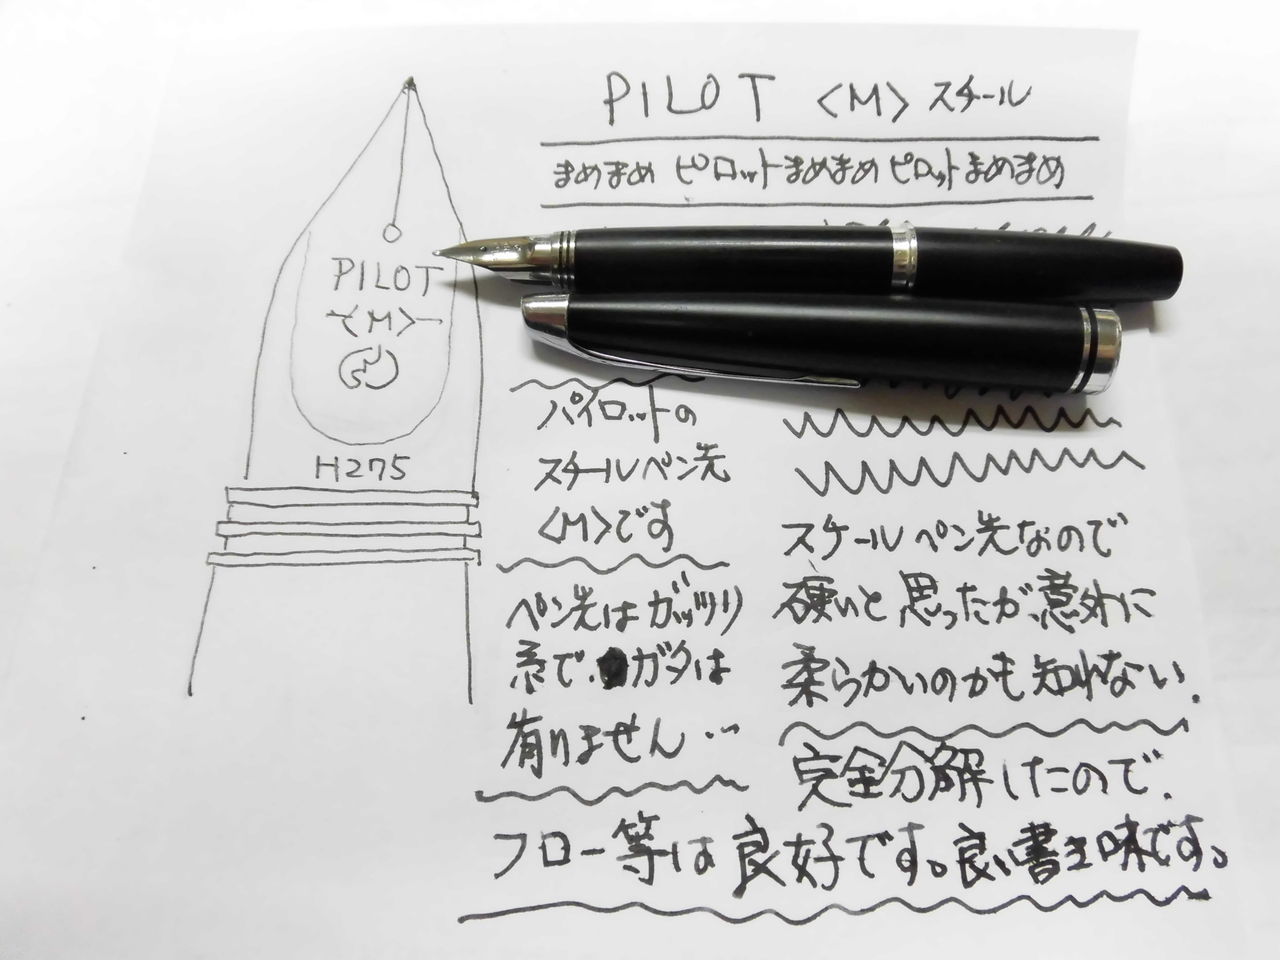 PILOT <M> スチール
まめまめ ピロットまめまめ ピロットまめまめ
PILOT
<M>
H275
パイロットの
スチールペン先
<M>です
ペン先はガッツリ
系で、ガタは
有りません…
スケールペン先なので
硬いと思ったが、意外に
柔らかいのかも知れない.
完全分解したので、
フロー等は良好です。良い書き味です。